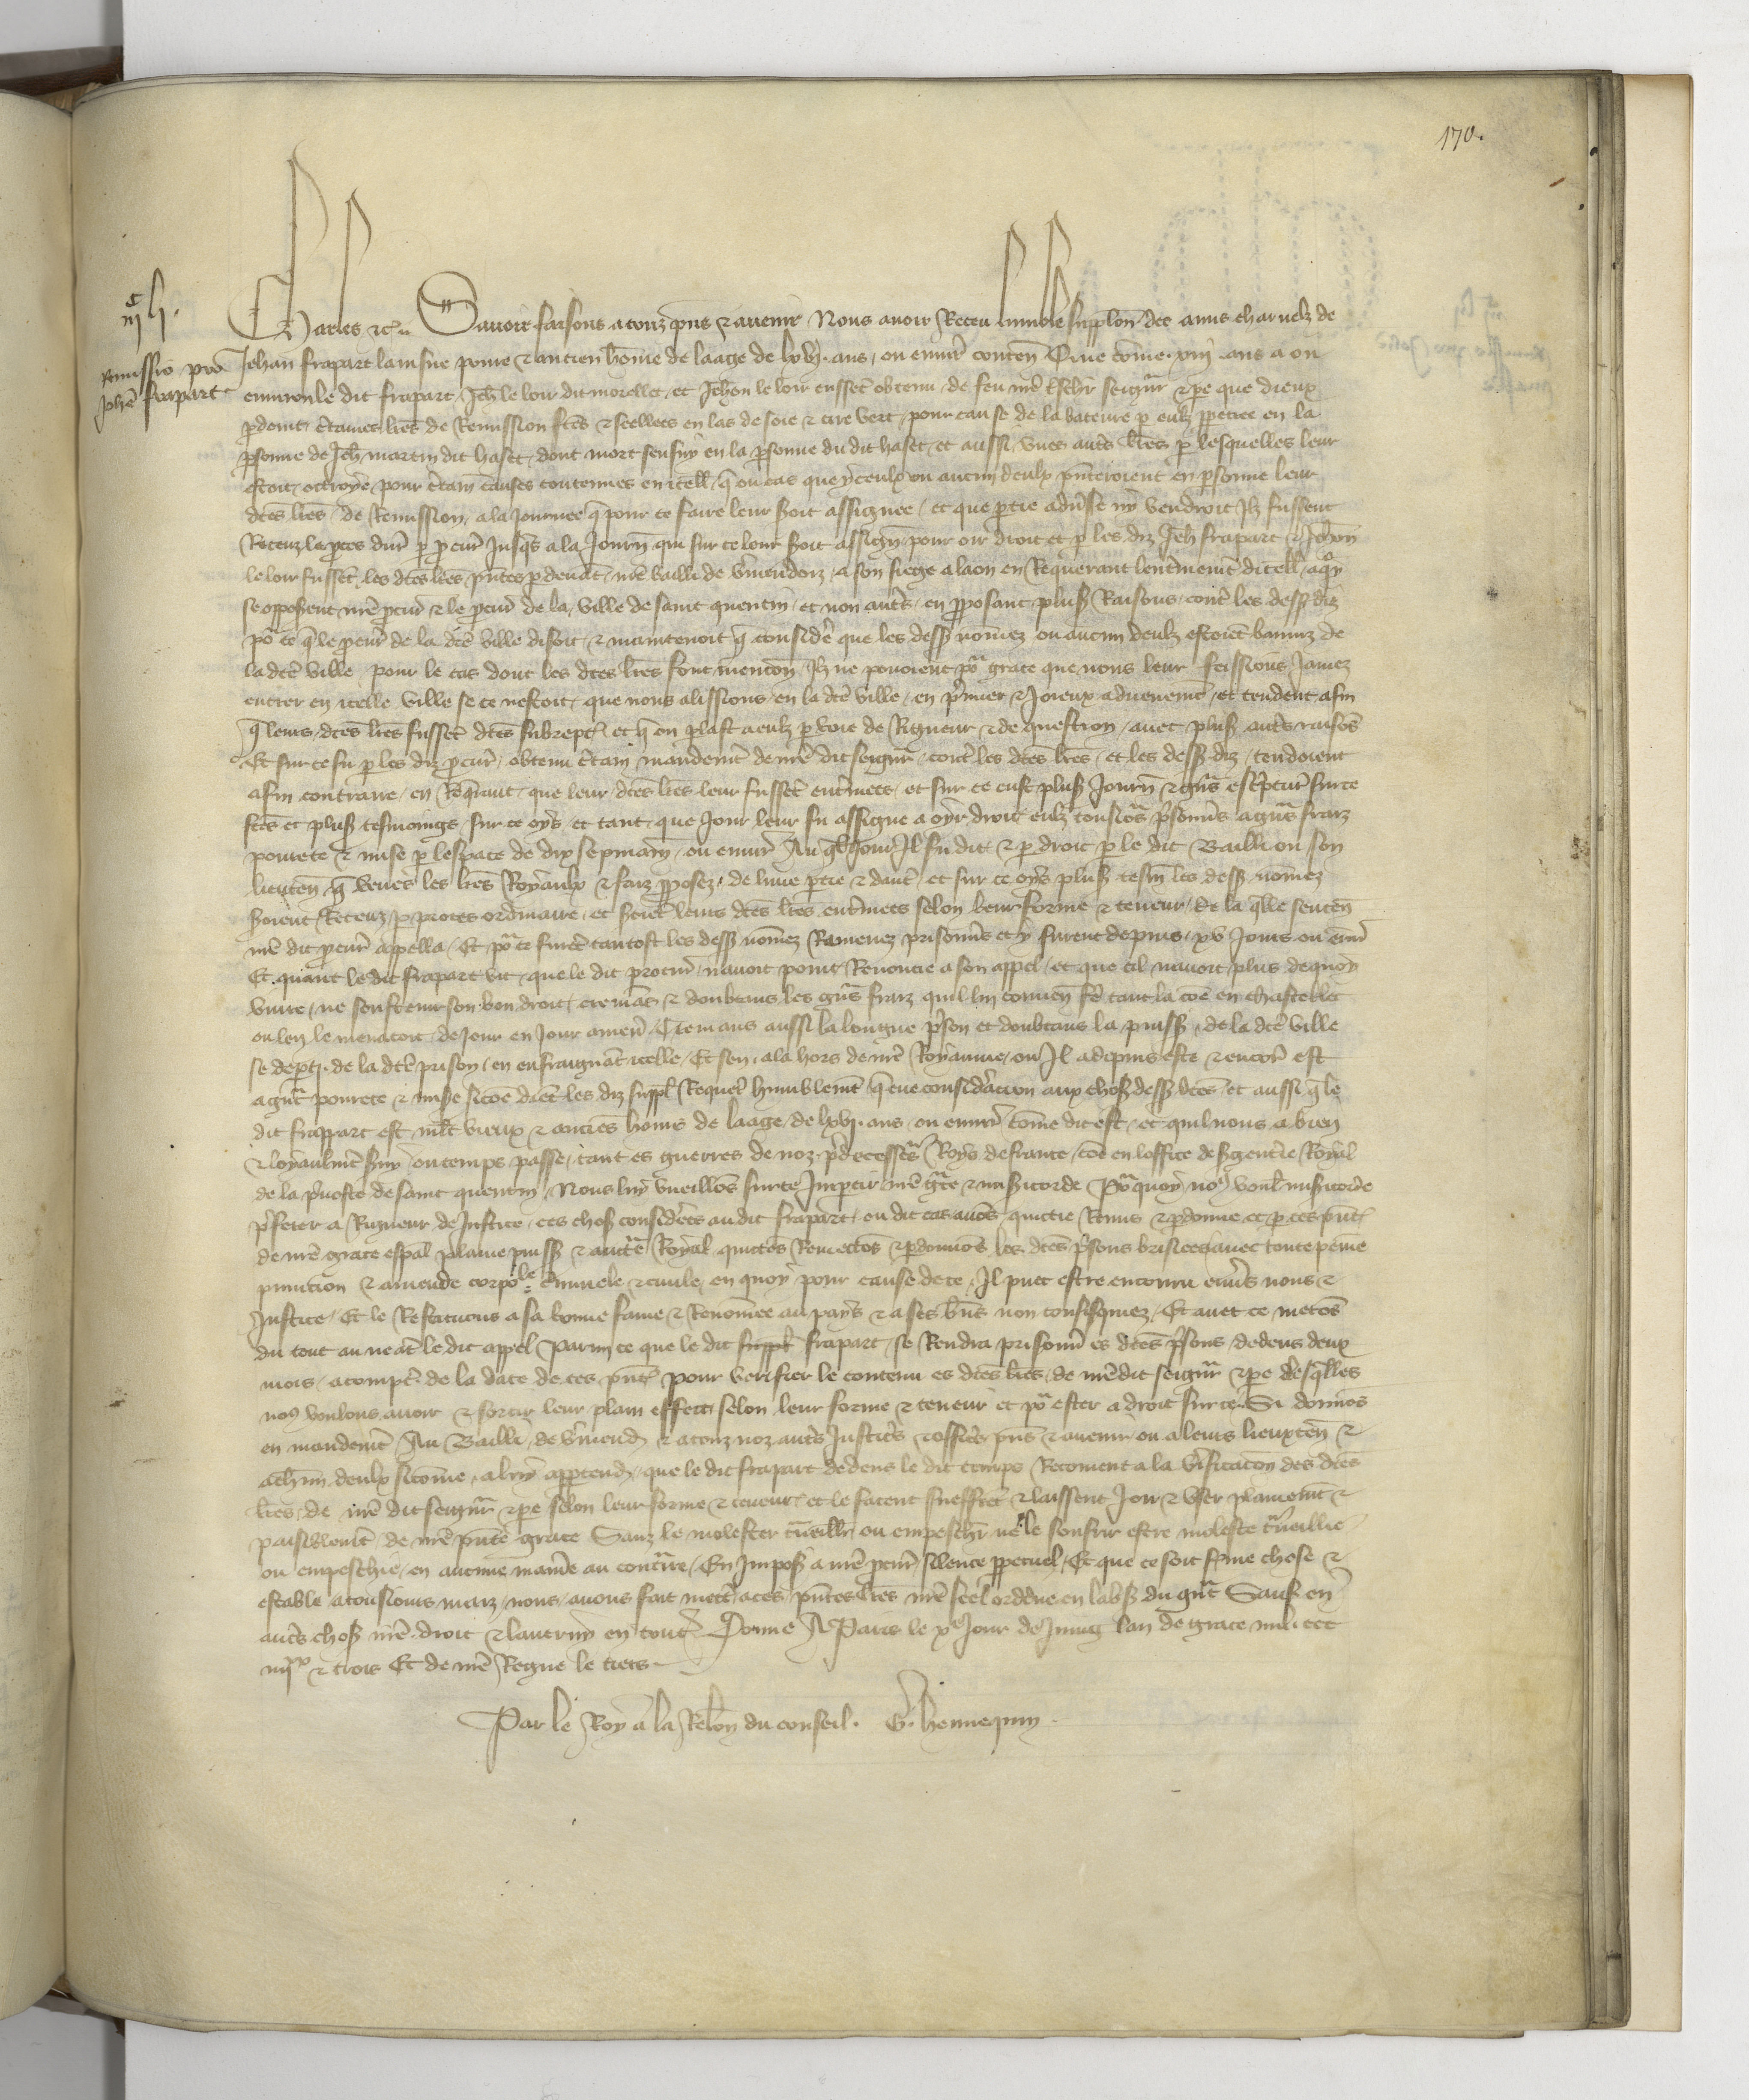 170.
Charles etc. Savoir faisons a touz pns et avenir Nous avoir Receu humble supplon des amis charnelz de
Remissio pro
Johe frapart
Jehan frapart lainsne povre et ancien home de laage de lxvj. ans, ou envir conten Que come xiiij ans a ou
environ le dit frapart Jeh le loir dit morellet, et Jehan le loir eussent obtenu de feu nre treschr seigur et pe que dieux
pdoint, ctaines lres de Remission fces et scellees en las de soie et cire vert, pour cause de la bateure p eulz ppetree en la
psonne de Jeh martin dit haset, dont mort sensuy en la psonne du dit haset, et aussi unes autres lres p lesquelles leur
estoit octroye pour ctain causes contenues en icell, q ou cas que yceulx ou aucun deulx pnteroient en psonne leur
dces lres de Remission, a la Journee q pour ce faire leur soit assignee, et que ptie advse ny vendroit Ilz fussent
Receuz le pces dur p pcur Jusqs a la Journ qui sur ce leur soit assign pour oir droit et p les diz Jeh frapart et Jehan
le loir fussent les dces lres pntes p devat nre bailli de vmendoiz, a son siege a laon en Requerant lentinement dicell, a quoy
se opposent nre pcur et le pcur de la ville de saint quentin, et non autrs, en pposant plus Raisons contre les dess diz
por ce q le pcur de la dce ville disoit et maintenoit q consider que les dess nomez ou aucun deulz estoient banniz de
la dce ville, pour le cas dont les dces lres font mencon, Ilz ne povoient por grace que nous leur feissions Jamez
entrer en icelle ville se ce nestoit, que nous alissions en la dce ville, en pmier et Joieux advenement, et tendent afin
q leurs dces lres fussent dces subrept et q on plast a eulz p voie de Rigueur et de question, avec plus autrs raisons
Et sur ce fu p les diz pcur obtenu ctain mandement de nre dit seigur, contre les dces lres, et les dess diz tendoient
afin contraire, en Requant que leur dces lres leur fussent entinees, et sur ce eust plus Journ et gns escriptur sur ce
fces et plus tesmoings sur ce oys, et tant que Jour leur fu assigne a oyr droit eulz tousiors prisonns a gns fraiz
povrete et mise p lespace de dix sepmain, ou envir Au ql Jour Il fu dit et p droit p le dit Bailli ou son
lieuten q veues les lres Royaulx et faiz pposez de lune ptie et dautre, et sur ce oys plus tesm les dess nomez
soient Receuz p proces ordinaire, et soient leurs dces lres entinees selon leur forme et teneur, de la qlle senten
nre dit pcur appella, Et por ce furent tantost les dess nomez Ramenez prisonns et y furent depuis, xv Jours ou envir
Et quant le dit frapart vit que le dit procur navoit point Renoncie a son appel, et que cil navoit plus de quoy
vivre, ne soustenir son bon droit, cremas et doubtans les gns fraiz quil lui conven fe tant la coe en chastellet
ou len le menacoit de Jour en Jour amen, Cremans aussi la longue pson et doubtans la puiss de la dce ville
se depti de la dce prison, en enfraignat icelle, Et sen ala hors de nre Royaume, ou Il a depuis este et encor est
a gnt povrete et mise sicoe dient les diz suppl Requer humblement q eue consideracion aux chos dess dces, et aussi q le
dit frapart est mlt vieux et anciens homs de laage de lxvj. ans, ou envir come dit est, et quil nous a bien
et loyaulment Suy ou temps passe, tant es guerres de noz pdecessers Roys de france, coe en loffice de Sgenterie Royal
de la pvoste de saint quentin, Nous luy vueillons sur ce Impetir nre gce et misicorde Por quoy nos voul misicorde
pferer a Rigueur de Justice, ces chos considerees au dit frapart, ou dit cas avons quictie Remis et pdonne et p ces pnt
de nre grace espal plaine puiss et aucte Royal quictons Remectons et pdonnons les dces psons brisiees avec toute peine
punition et amende corpole Criminele et civile, en quoy pour cause de ce, Il puet estre encouru envers nous et
Justice, Et le Restituons a sa bonne fame et Renomee au pays et a ses bns non confisquez, Et avec ce metos
du tout au neant le dit appel Parmi ce que le dit suppl frapart, se Rendra prisonn es dces psons dedens deux
mois, a compt de la date de ces pnt pour verifier le contenu es dces lres de nre dit seigur et pe desqlles
nos voulons avoir et sortir leur plain effect, selon leur forme et teneur et por ester a droit sur ce. Si donnons
en mandement Au Bailli de vmend et a touz noz autrs Justicrs et officrs pns et avenir ou a leurs lieuxten et
achun deulx sicome a luy apptend que le dit frapart dedens le dit temps Recoivent a la verificacon des dces
lres, de nre dit seigur et pe selon leur forme et teneur, et le facent sueffrent et laissent Joir et user plainement et
paisiblement de nre pnte grace Sanz le molester traveillr ou empeschr ne le soufrir estre moleste traveillie
ou empeschie, en aucune manie au contre, En Impos a nre pcur silence ppetuel, Et que ce soit ferme chose et
estable a tousiours maiz, nous avons fait mectre a ces pntes lres nre seel ordene en labs du gnt Sauf en
autrs chos nre droit et lautruy en tout Donne A Paris le xe Jour de Juing lan de grace mil ccc
iiijxx et trois Et de nre Regne le tiers
Par le Roy a la Relon du conseil. G. hennequin.